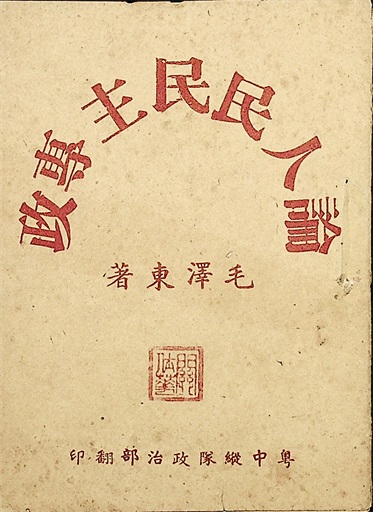 論人民民主專政
毛澤東著
粤中縱隊政治部翻印